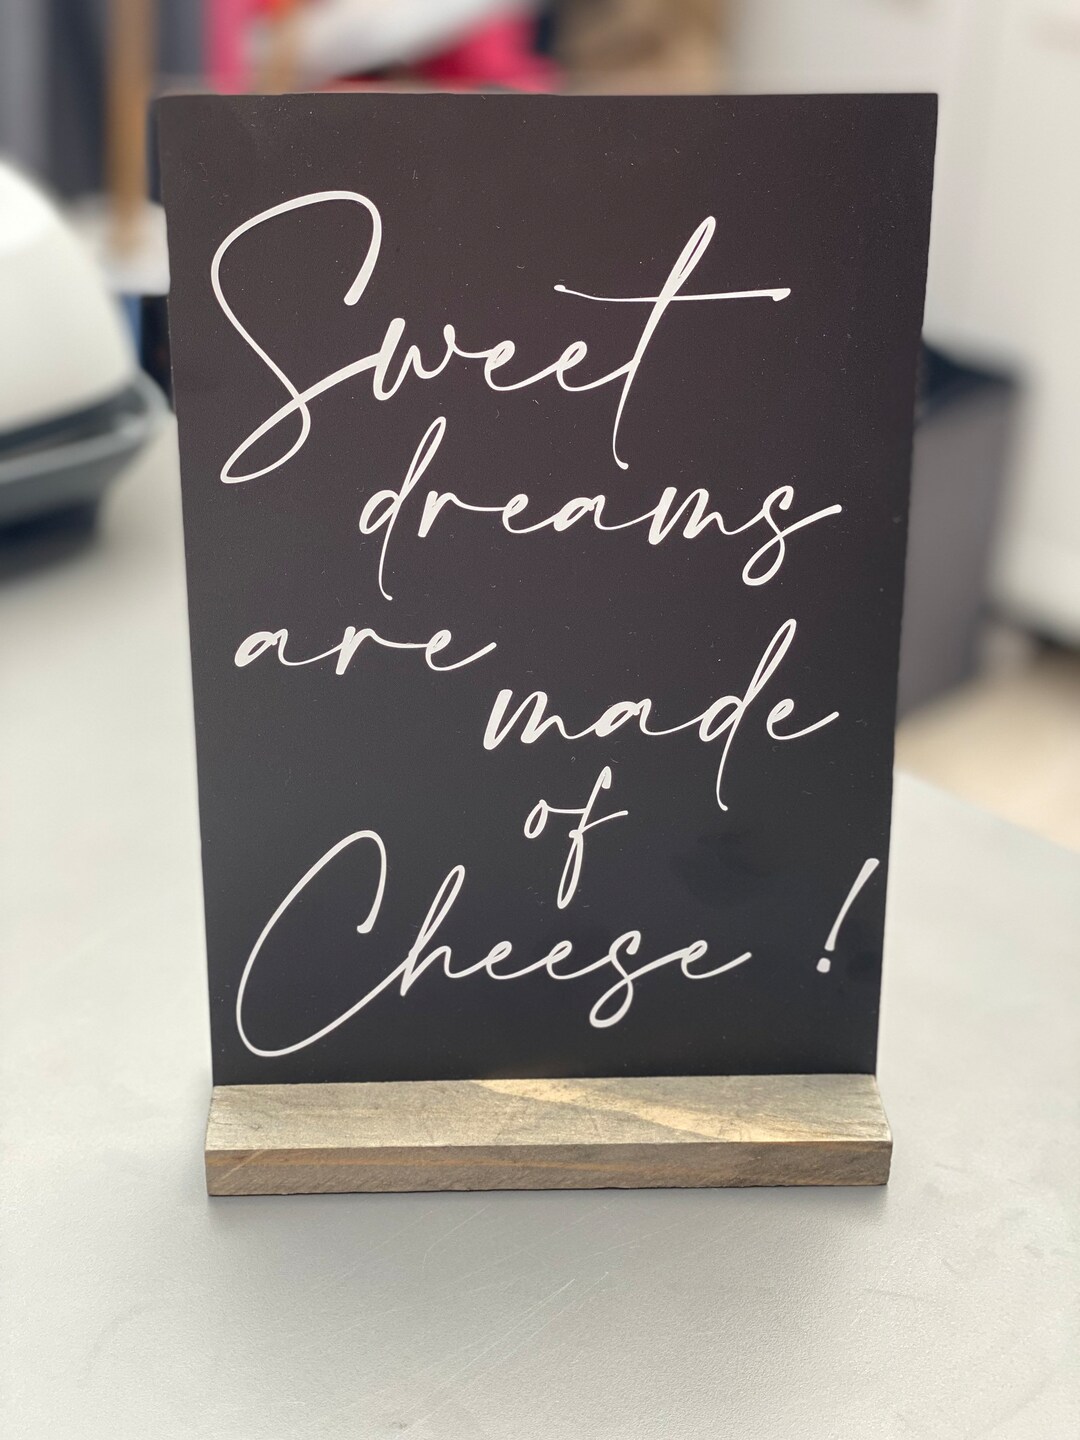 Sweet
dreams
are
made
of
Cheese !